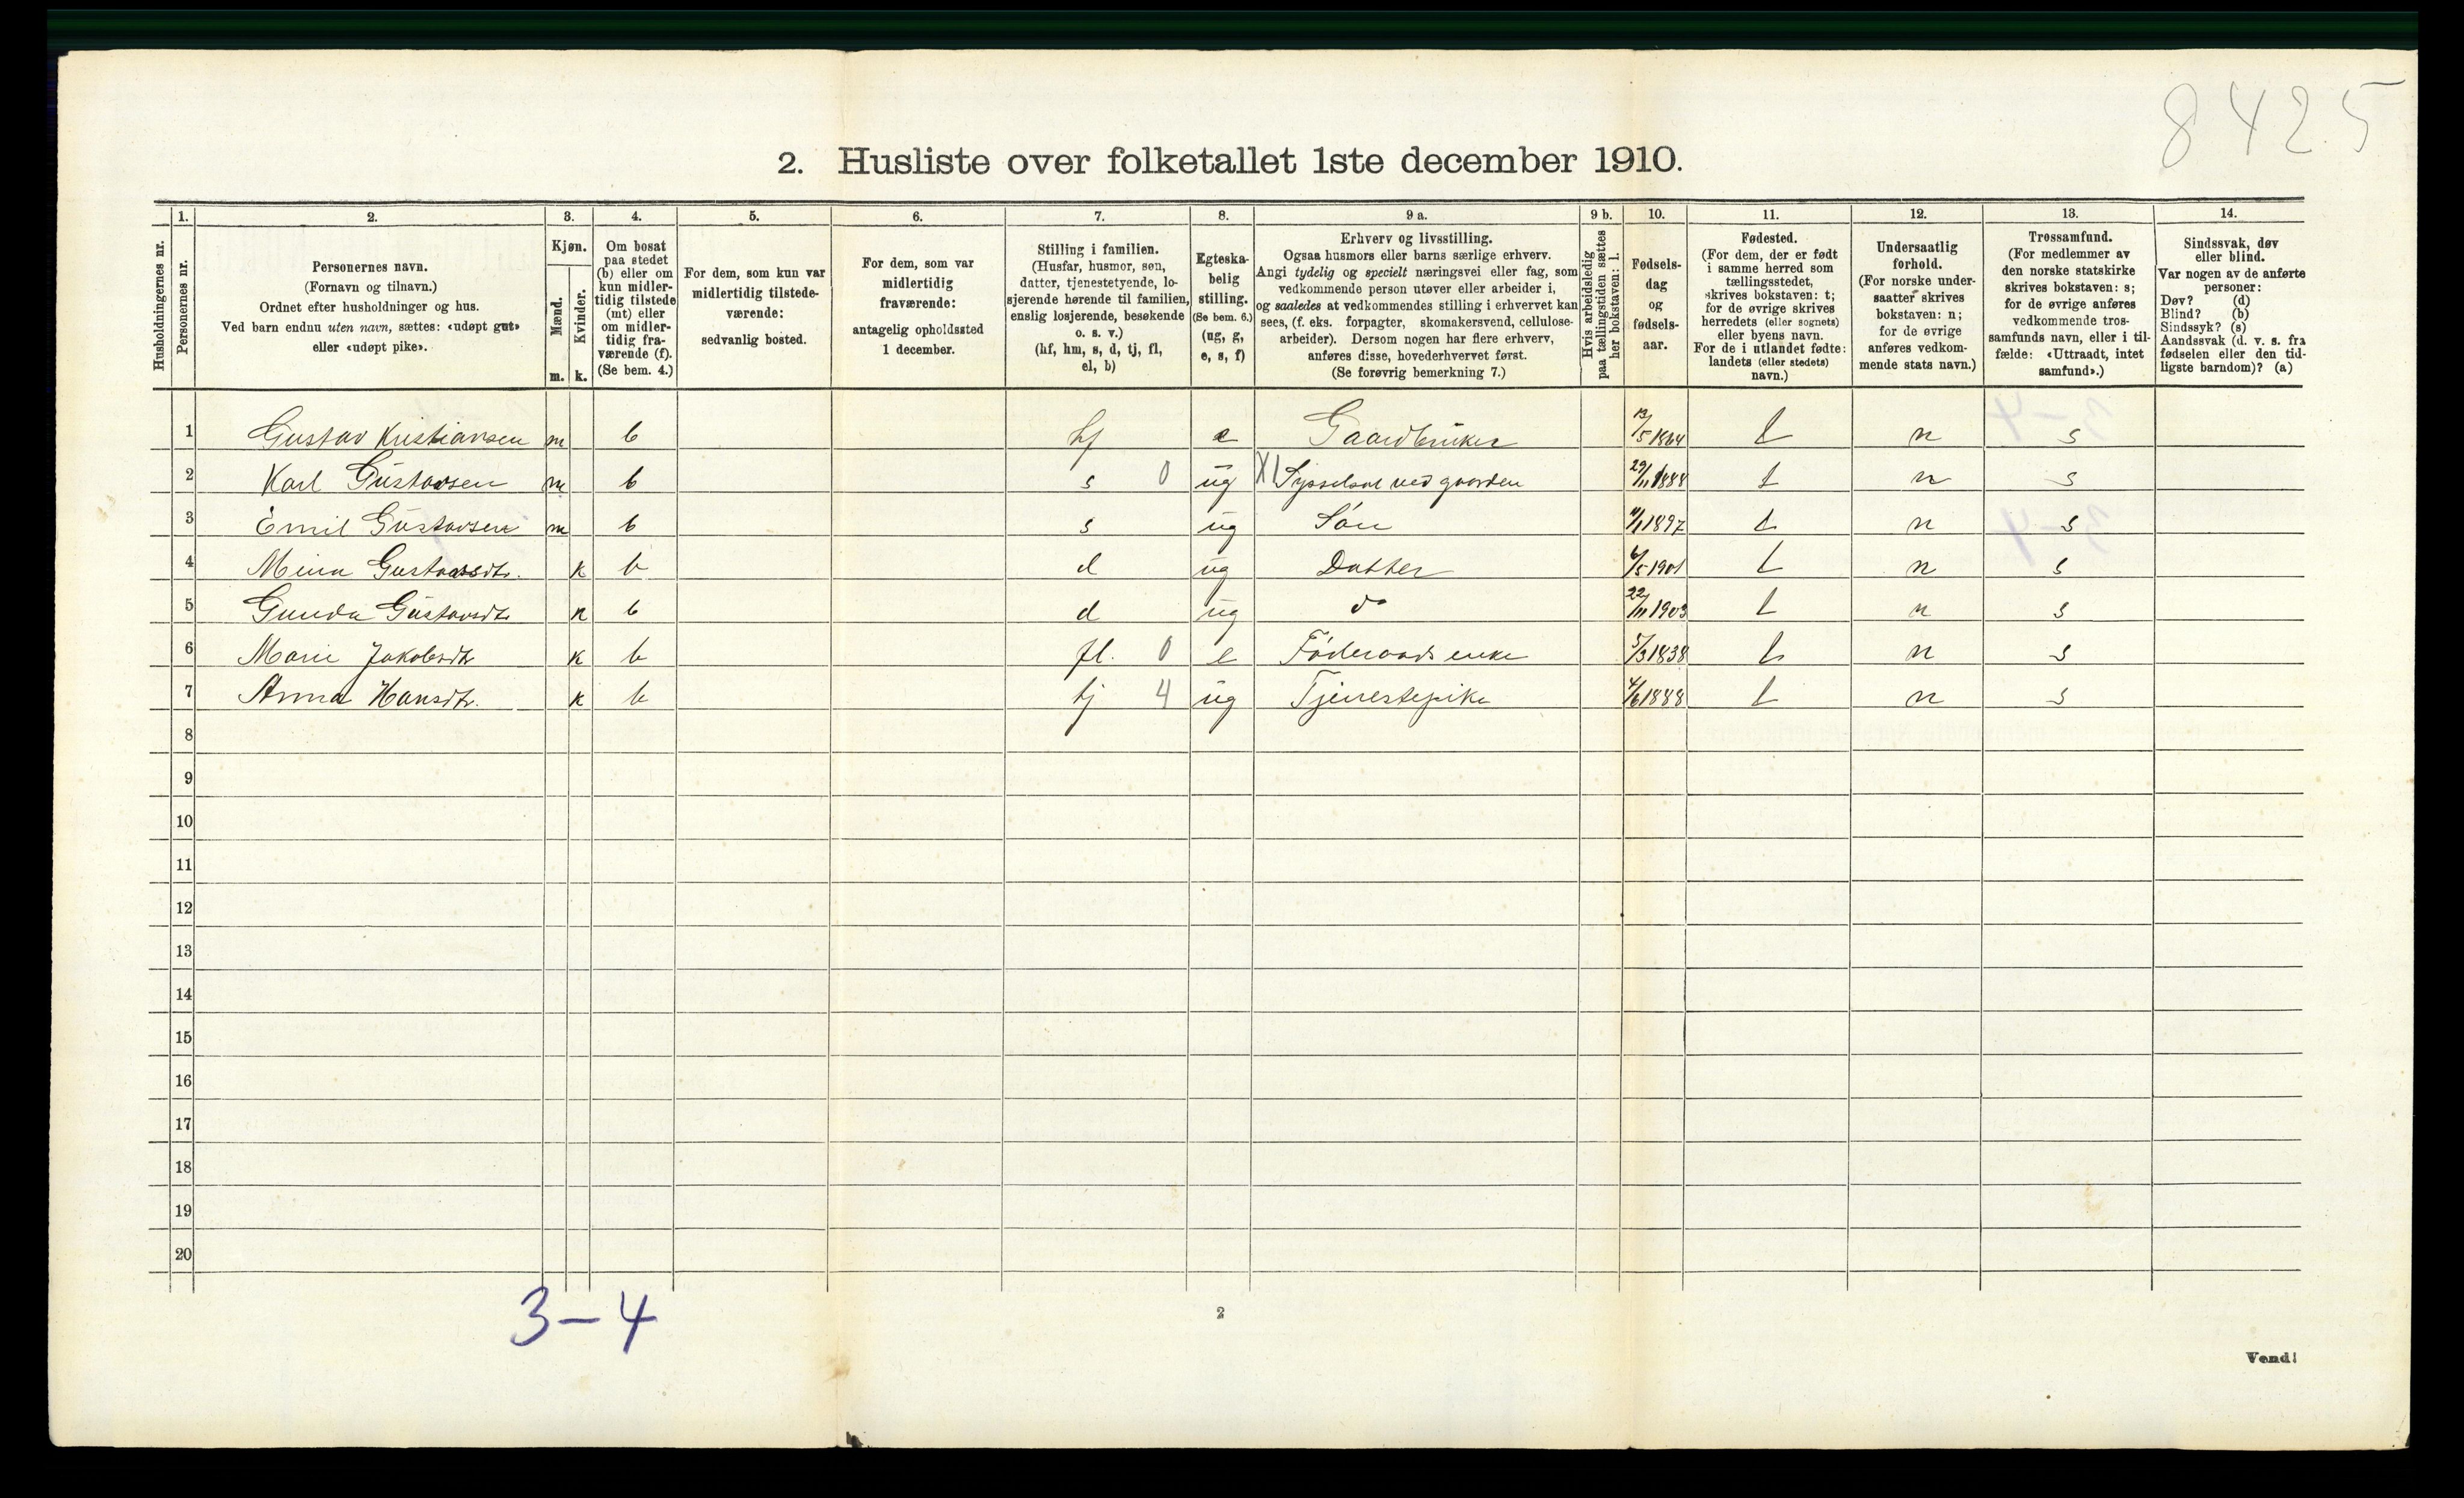 8425
2. Husliste over folketallet 1ste december 1910.
Husholdningernes nr.
1. Personernes nr.
2. Personernes navn. (Fornavn og tilnavn.) Ordnet efter husholdninger og hus. Ved barn endnu uten navn, sættes: «udøpt gut» eller «udøpt pike».
3. Kjøn. Mænd. m. Kvinder. k.
4. Om bosat paa stedet (b) eller om kun midlertidig tilstede (mt) eller om midlertidig fraværende (f). (Se bem. 4.)
5. For dem, som kun var midlertidig tilstedeværende: sedvanlig bosted.
6. For dem, som var midlertidig fraværende: antagelig opholdssted 1 december.
7. Stilling i familien. (Husfar, husmor, søn, datter, tjenestetyende, losjerende hørende til familien, enslig losjerende, besøkende o. s. v.) (hf, hm, s, d, tj, fl, el, b)
8. Egteskabelig stilling. (Se bem. 6.) (ug, g, e, s, f)
9 a. Erhverv og livsstilling. Ogsaa husmors eller barns særlige erhverv. Angi tydelig og specielt næringsvei eller fag, som vedkommende person utøver eller arbeider i, og saaledes at vedkommendes stilling i erhvervet kan sees, (f. eks. forpagter, skomakersvend, cellulosearbeider). Dersom nogen har flere erhverv, anføres disse, hovederhvervet først. (Se forøvrig bemerkning 7.)
9 b. Hvis arbeidsledig paa tællingstiden sættes her bokstaven: l.
10. Fødselsdag og fødselsaar.
11. Fødested. (For dem, der er født i samme herred som tællingsstedet, skrives bokstaven: t; for de øvrige skrives herredets (eller sognets) eller byens navn. For de i utlandet fødte: landets (eller stedets) navn.)
12. Undersaatlig forhold. (For norske undersaatter skrives bokstaven: n; for de øvrige anføres vedkommende stats navn.)
13. Trossamfund. (For medlemmer av den norske statskirke skrives bokstaven: s; for de øvrige anføres vedkommende trossamfunds navn, eller i tilfælde: «Uttraadt, intet samfund».)
14. Sindssvak, døv eller blind. Var nogen av de anførte personer: Døv? (d) Blind? (b) Sindssyk? (s) Aandssvak (d. v. s. fra fødselen eller den tidligste barndom)? (a)
1 Gustav Kristiansen m b hf e Gaardbruker 1864 t n s
2 Karl Gustavsen m b s 0 ug X Sysselsat ved gaarden 29/11 1888 t n s
3 Emil Gustavsen m b s ug Søn 1897 t n s
4 Mina Gustavsdt. k b d ug Datter 6/5 1901 t n s
5 Gunda Gustavsdt k b d ug do 22/11 1903 t n s
6 Marie Jakobsdt k b fl. 0 e Føderaads enke 5/3 1838 t n s
7 Anna Hansdt. k b tj 4 ug Tjenestepike 4/6 1888 t n s
8
9
10
11
12
13
14
15
16
17
18
19
20
3-4
2
Vend!